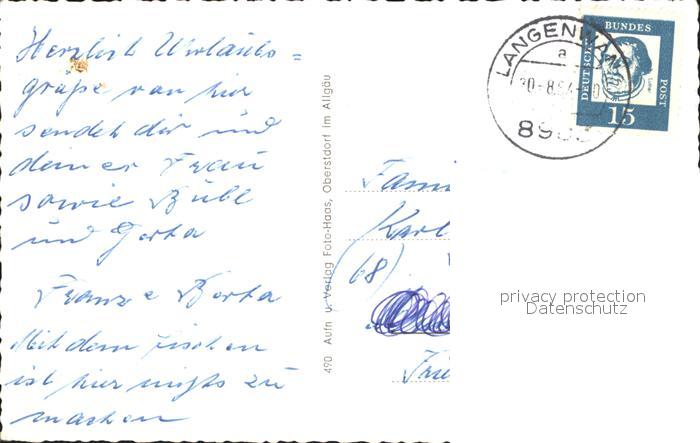 Herzlich Uhrlaubs=
grüße von hier
sendet dir und
deiner Frau
sowie Bübl
und Gerta
Franz e Berta
Mit dem fischen
ist hier nichts zu
machen
490 Aufn u. Verlag Foto-Haas, Oberstdorf im Allgäu
LANGENWAN
a
8983
DEUTSCHE
BUNDES
POST
15
Fami
Karl
(68)
privacy protection
Datenschutz